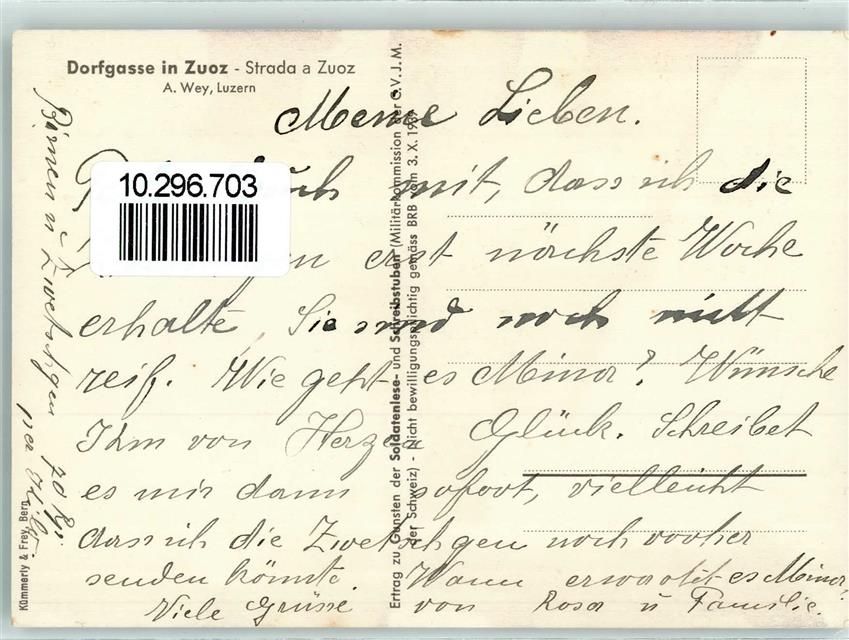 Dorfgasse in Zuoz - Strada a Zuoz
A. Wey, Luzern
Meine Lieben.
10.296.703
mit, dass ich die
erst nächste Woche
erhalte. Sie sind noch nicht
reif. Wie geht es Mina? Wünsche
Ihm von Herzen Glück. Schreibet
es mir dann sofort, vielleicht
dass ich die Zwetschgen noch vorher
senden könnte. Wann erwartet es Mina?
Viele Grüsse von Rosa u Familie.
Birnen u Zwetschgen 70 Rp.
per Kilo
Kümmerly & Frey, Bern
Ertrag zu Gunsten der Soldatenlese- und Schreibstuben (Militärkommission der C.V.J.M.
der Schweiz) - (Nicht bewilligungspflichtig gemäss BRB vom 3. X. 1939)